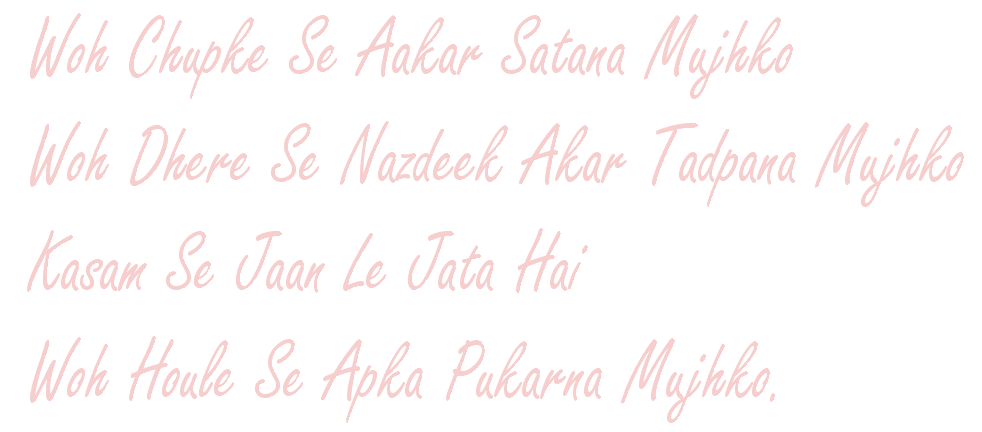 Woh Chupke Se Aakar Satana Mujhko
Woh Dhere Se Nazdeek Akar Tadpana Mujhko
Kasam Se Jaan Le Jata Hai
Woh Houle Se Apka Pukarna Mujhko.